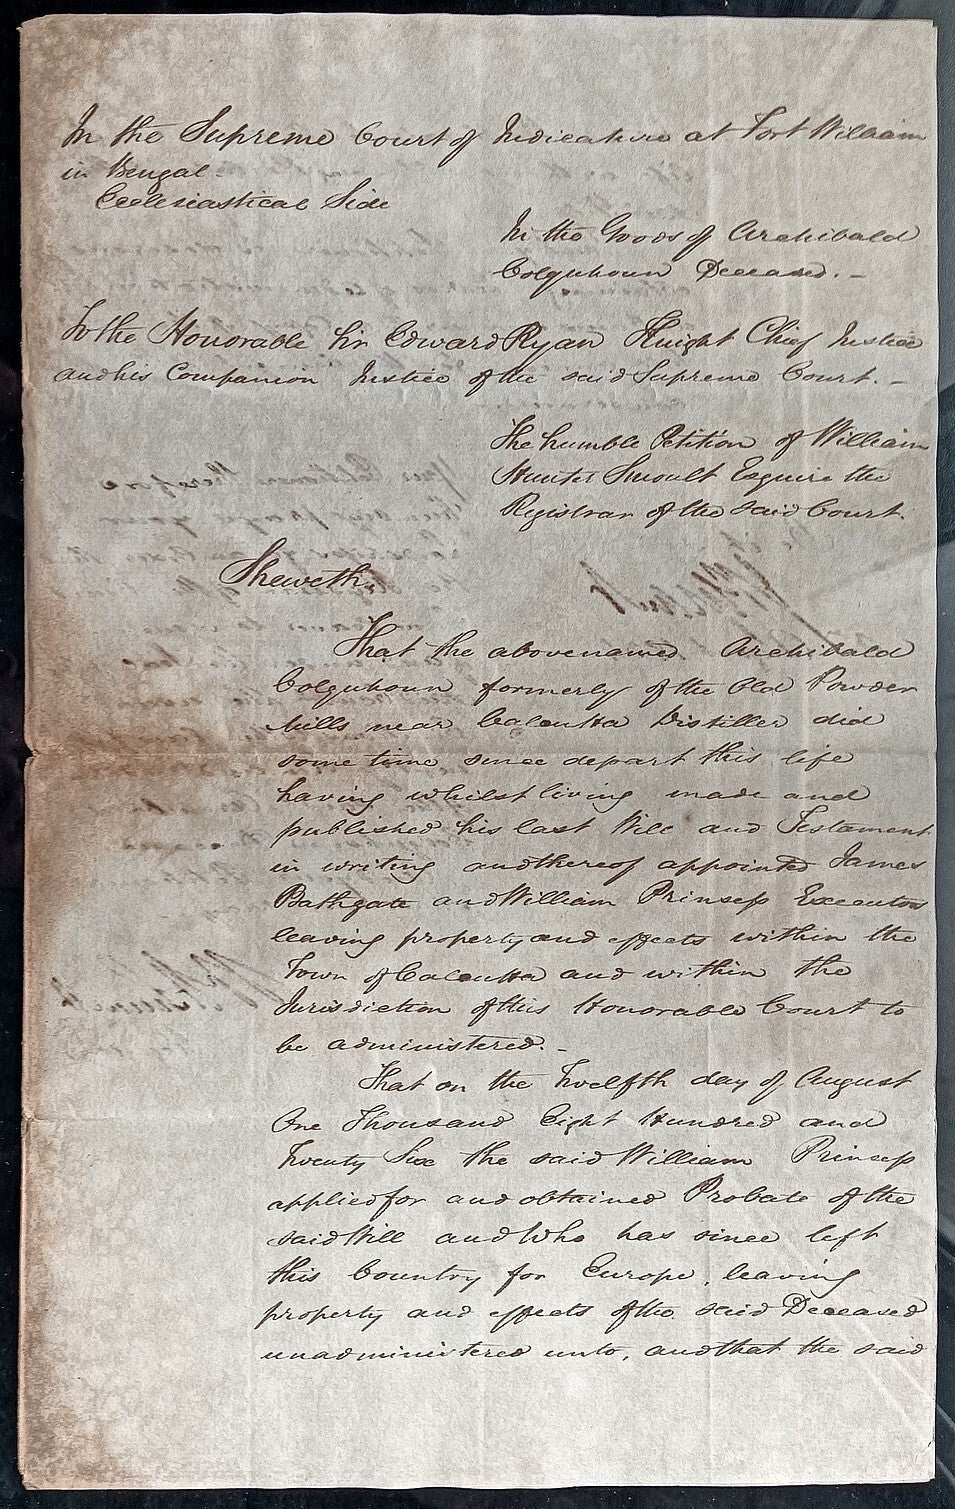 In the Supreme Court of Judicature at Fort William
in Bengal
Ecclesiastical Side
In the Goods of Archibald
Colquhoun Deceased. -
To the Honorable Sir Edward Ryan Knight Chief Justice
and his Companion Justice of the said Supreme Court. -
The humble Petition of William
Hunter Smoult Esquire the
Registrar of the said Court.
Sheweth,
That the abovenamed Archibald
Colquhoun formerly of the Old Powder
Mills near Calcutta Distiller did
some time since depart this life
having whilst living made and
published his last Will and Testament
in writing and thereof appointed James
Bathgate and William Prinsep Executors
leaving property and effects within the
Town of Calcutta and within the
Jurisdiction of this Honorable Court to
be administered. -
That on the Twelfth day of August
One Thousand Eight Hundred and
Twenty Six the said William Prinsep
applied for and obtained Probate of the
said Will and Who has since left
this Country for Europe, leaving
property and effects of the said Deceased
unadministered unto, and that the said